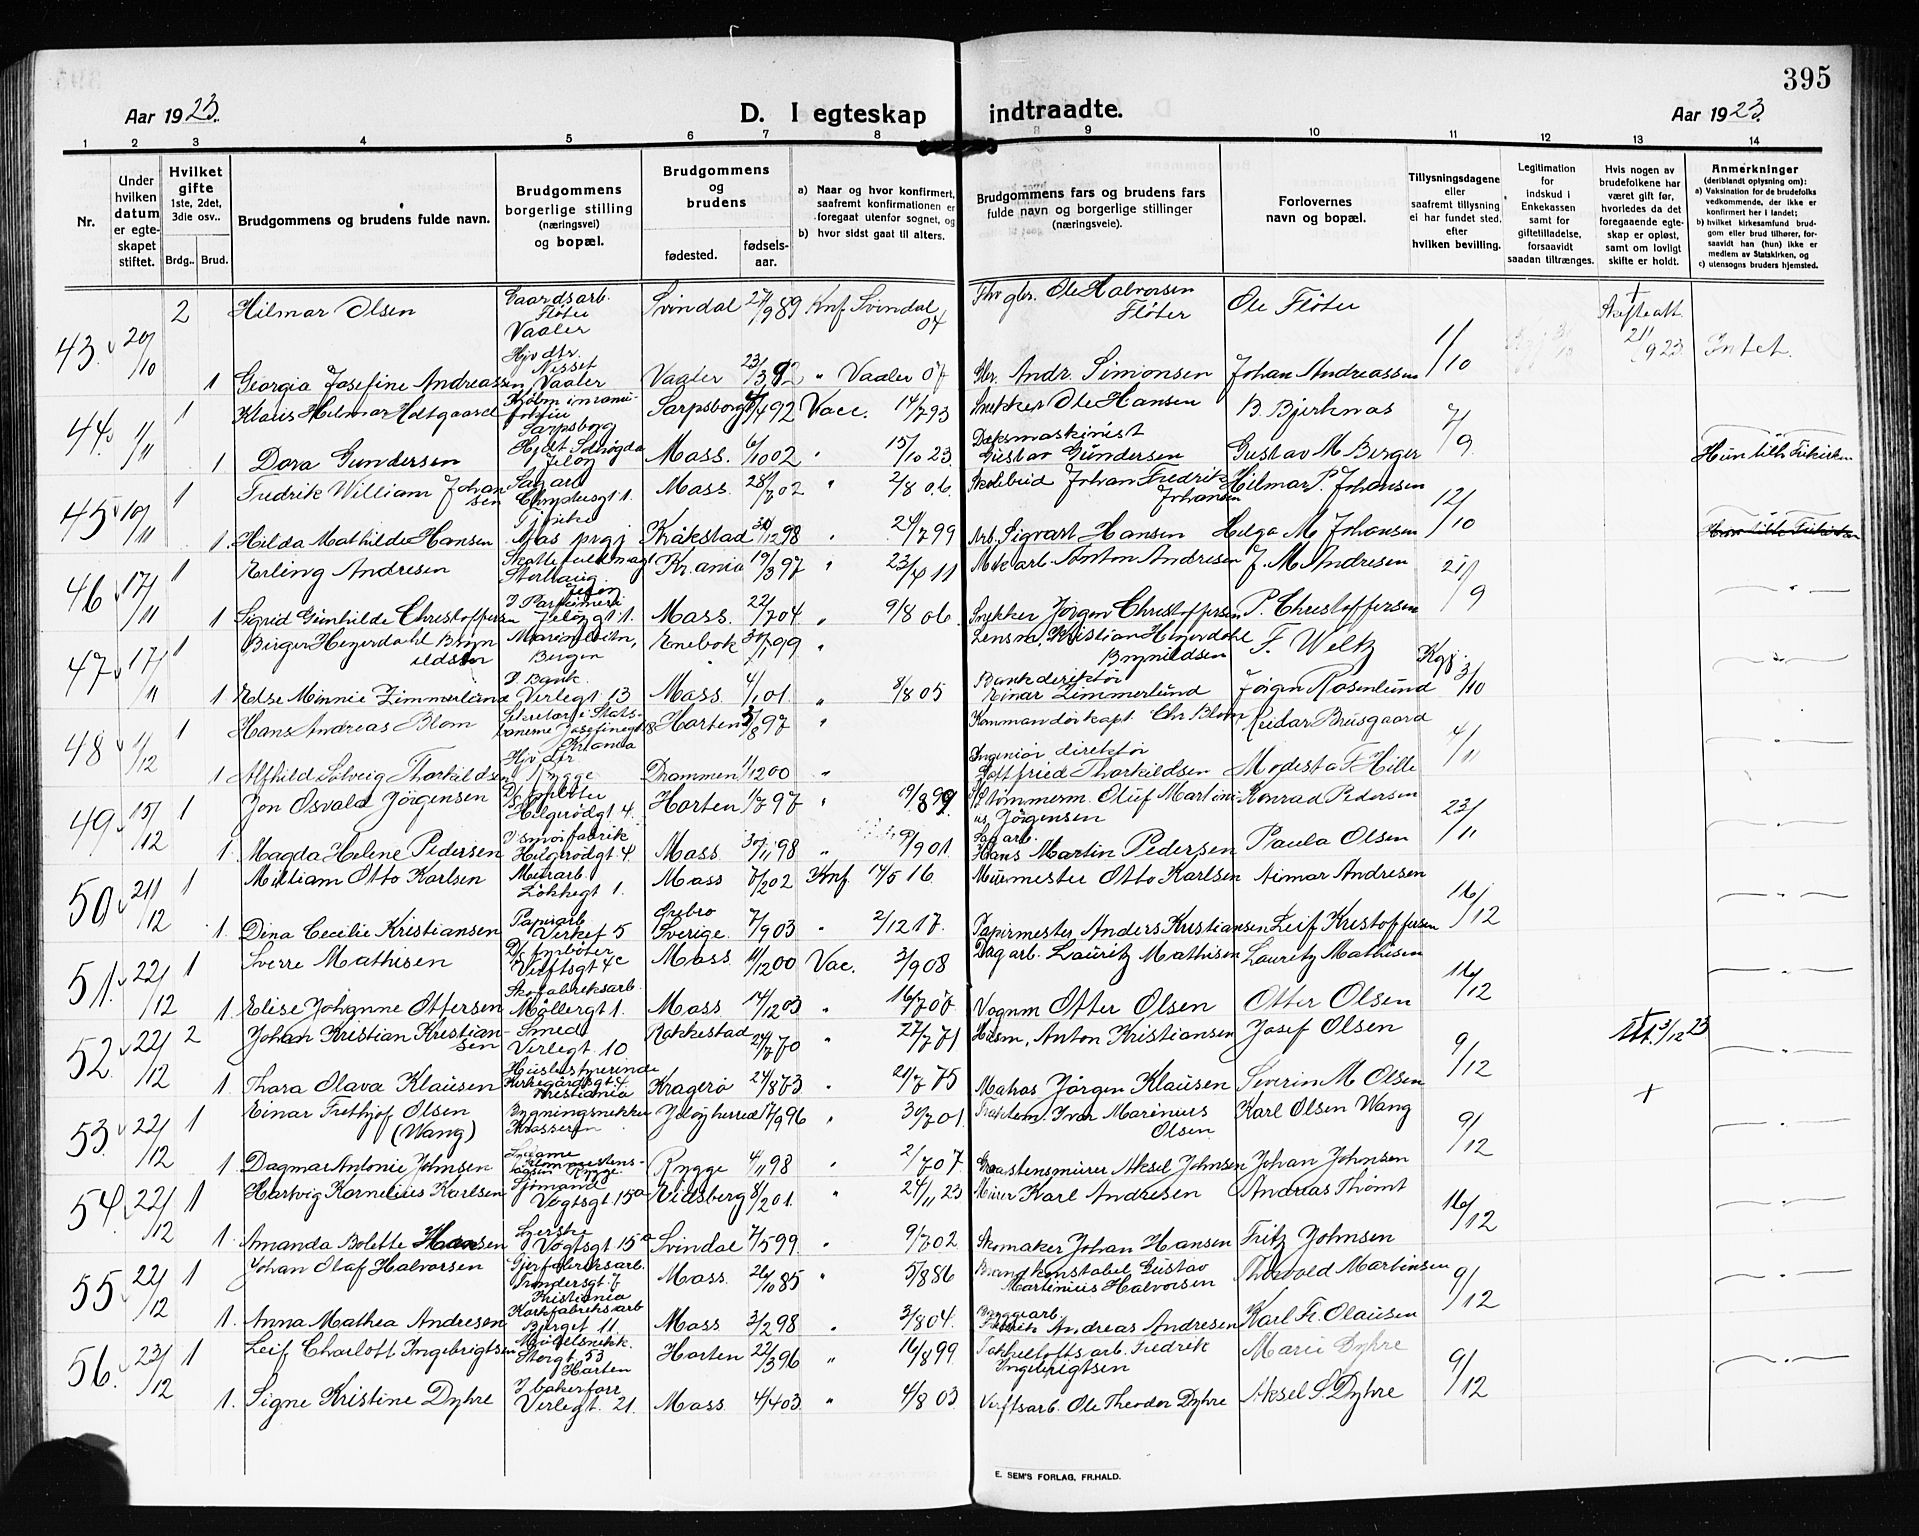 395
Aar 1923.
D. I egteskap indtraadte.
Aar 1923.
1 2 3 4 5 6 7 8 9 10 11 12 13 14
Nr.
Under hvilken datum er egteskapet stiftet.
Hvilket gifte 1ste, 2det, 3die osv..
Brdg.. Brud.
Brudgommens og brudens fulde navn.
Brudgommens borgerlige stilling (næringsvei) og bopæl.
Brudgommens og brudens
fødested.
fødselsaar.
a) Naar og hvor konfirmert, saafremt konfirmationen er foregaat utenfor sognet, og
b) hvor sidst gaat til alters.
Brudgommens fars og brudens fars fulde navn og borgerlige stillinger (næringsveie).
Forlovernes navn og bopæl.
Tillysningsdagene eller saafremt tillysning ei har fundet sted, efter hvilken bevilling.
Legitimation for indskud i Enkekassen samt for giftetilladelse, forsaavidt saadan tiltrænges.
Hvis nogen av brudefolkene har været gift før, hvorledes da det foregaaende egteskap er opløst, samt om lovligt skifte er holdt.
Anmerkninger (deriblandt oplysning om):
a) Vaksination for de brudefolks vedkommende, der ikke er konfirmert her i landet;
b) hvilket kirkesamfund brudgom eller brud tilhører, forsaavidt han (hun) ikke er medlem av Statskirken, og
c) utensogns bruders hjemsted.
43 20/10 2 Hilmar Olsen Gaardsarb. Fløter Vaaler Svindal 27/9 89 Knf Svindal 04 Ole Halvorsen Fløter Ole Fløter 1/10 Skifteatt. 21/9 23 Intet.
1 Georgia Josefine Andreassen Hjv dtr. Nisset Vaaler Vaaler 23/3 92 " Vaaler 07 Gbr. Andr. Simonsen Johan Andreassen
44 1/11 1 Klaus Hilmar Holtgaard Sarpsborg Sarpsborg 4/4 92 Vacc. 14/7 93 Snekker Ole Hansen B. Bjerknas 7/9
1 Dora Gundersen Jeløy Moss. 6/10 02 " 15/10 23 Dæksmaskinist Gustav Gundersen Gustav M Berger Hun tilh Frikirken
45 10/11 1 Fredrik William Johansen Sagarb Moss 28/7 02 " 2/8 06 Skolebud Johan Fredrik Johansen Hilmar P. Johansen 12/10
1. Hilda Mathilde Hansen Tjpike Kråkstad 30/12 98 " 24/7 99 Arb. Sigvart Hansen Helga M Johansen
46 17/11 1 Erling Andresen Storhaug Jeløy Kr.ania 19/3 97 " 23/4 11 Mek arb. Anton Andresen J. M Andresen 21/9
1 Sigrid Gunhilde Christoffersen Moss. 22/7 04 " 9/8 06. Snekker Jörgen Christoffersen P. Christoffersen
47 17/11 1 Birger Heyerdahl Brynildsen Bergen Enebak 30/1 99 " Lensm. Kristian Heyerdahl Brynildsen F. Weltz Kgg. 3/10
1 Else Minnie Zimmerlund D Bank. Verlegt 13 Moss 4/1 01. " 8/8 05 Bankdirektör Einar Zimmerlund Jörgen Rosenlund
48 1/12 1 Hans Andreas Blom Sekretær i Statsbanerne Josefinegt 8 Kr.ania Horten 3/8 97 " Kommandörkapt. Chr Blom Reidar Brusgaard 4/11
1 Alfhild Solveig Thorkildsen Hjv dtr Rygge Drammen 1/12 00 " Ingeniör direktör Gotfried Thorkildsen Modesta F Hille
49 15/12 1 Jon Osvald Jörgensen D/S fyrböter Helgerödgt 4. Horten 1/7 97 " 19/8 99 Tömmerm. Oluf Martinius Jörgensen Konrad Pedersen 23/11
1. Magda Helene Pedersen Helgerödgt. 4. Moss 30/11 98 " 9/9 01. Sagarb. Hans Martin Pedersen Paula Olsen
50 21/12 1 William Otto Karlsen Murarb. Lökkegt 1. Moss 7/2 02 Knf. 14/5 16. Murmester Otto Karlsen Aimar Andresen 16/12
1. Dina Cecilie Kristiansen Papirarb Verket 5 Örebro Sverige. 7/9 03 " 2/12 17. Papirmester Anders Kristiansen Leif Kristoffersen
51. 22/12 1 Sverre Mathisen D/S fyrböter Verftsgt 4c Moss. 11/12 00 Vac. 3/9 08 Dagarb. Lauritz Mathisen Lauritz Mathisen 16/12
1. Elise Johanne Ottersen Skofabriksarb. Möllergt 1. Moss 14/12 03 " 16/7 07 Vognm Otter Olsen Otter Olsen
52. 22/12 2 Johan Kristian Kristiansen Smed Verlegt. 10 Rakkestad 24/7 70 " 27/7 71 Husm. Anton Kristiansen Josef Olsen 9/12 Att. 3/12 23
1. Thora Olava Klausen Husbestyrerinde Kirkegårdsgt 4. Kristiania Kragerö 24/8 73 " 21/7 75 Matros Jörgen Klausen Severin M Olsen +
53. 22/12 1 Einar Frethjof Olsen (Wang) Bygningsnekker Krosseren Jeløy herred 17/9 96 " 30/7 01. Ivar Marinius Olsen Karl Olsen Wang 9/12
1 Dagmar Antonie Johnsen Rygge Rygge 4/11 98 " 2/7 07. Graastensmurer Aksel Johnsen Johan Johnsen
54. 22/12 1 Hartvig Kornelius Karlsen Sjömand Vogtsgt 15a Eidsberg 8/2 01. " 24/11 23 Murer Karl Andresen Andreas Thömt 16/12
1. Amanda Bolette Hansen Syerske Vogtsgt 15a Svindal 7/5 99 " 9/7 02 Skomaker Johan Hansen Fritz Johnsen
55 22/12 1 Johan Olaf Halvorsen Kristiania Moss. 26/10 85 " 5/8 86 Brandkonstabel Gustav Martinius Halvorsen Thorvald Martinsen 9/12
1. Anna Mathea Andresen Korkfabriksarb Bjerget 11. Moss 3/2 98 " 3/8 04. Byggearb. Andreas Andresen Karl Fr. Olausen
56. 23/12 1 Leif Charlott Ingebrigtsen Möbelsnekk. Storgt. 53 Horten Horten 22/3 96 " 16/8 99. Takkelloftsarb. Fredrik Ingebrigtsen Marie Dyhre 9/12
1. Signe Kristine Dyhre I bakerforr Verlegt. 21. Moss 4/4 03. " 4/8 03 Verftsarb. Ole Theodor Dyhre Aksel S. Dyhre
E. SEM'S FORLAG, FR.HALD.